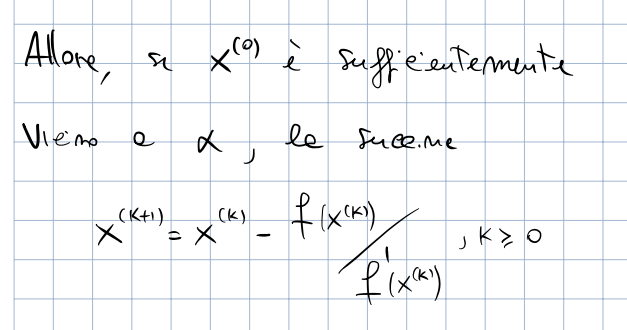 Allora, se x^(0) è sufficientemente
vicino a α, la succ.ne
x^(k+1) = x^(k) - f(x^(k)) / f'(x^(k)), k ≥ 0